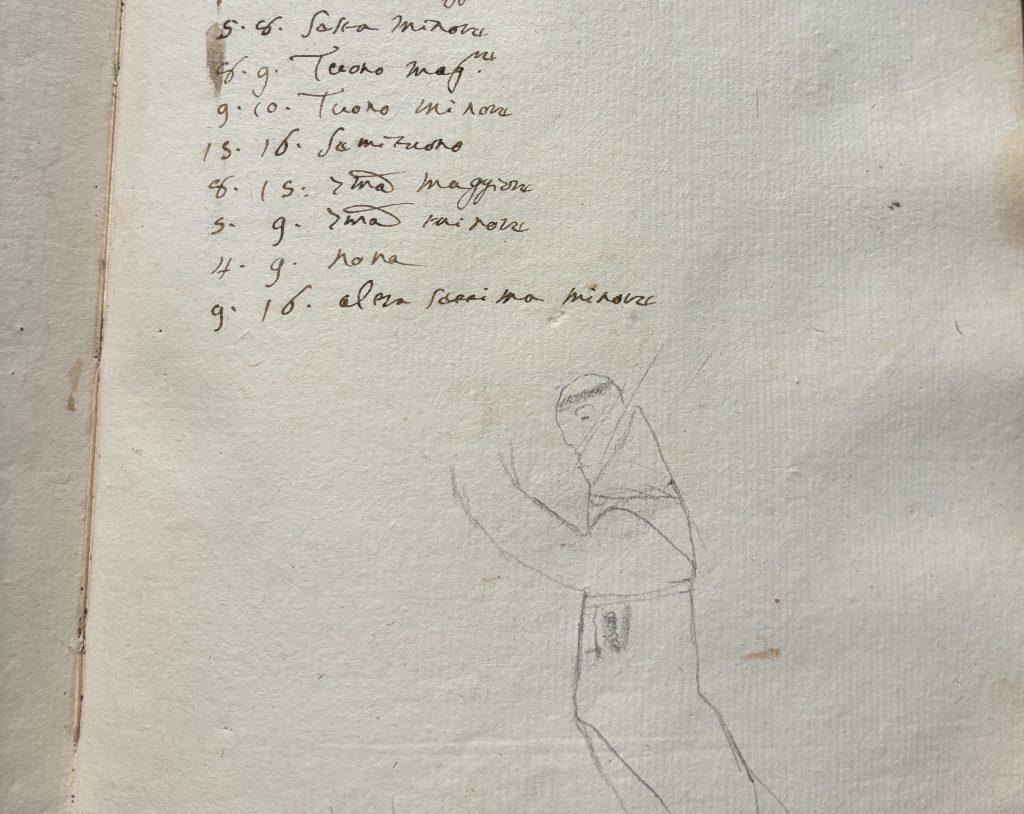 5. 8. Sesta minore
8. 9. Tuono mag.re
9. 10. Tuono minore
15. 16. Semituono
8. 15. 7ma maggiore
5. 9. 7ma minore
4. 9. nona
9. 16. altra settima minore